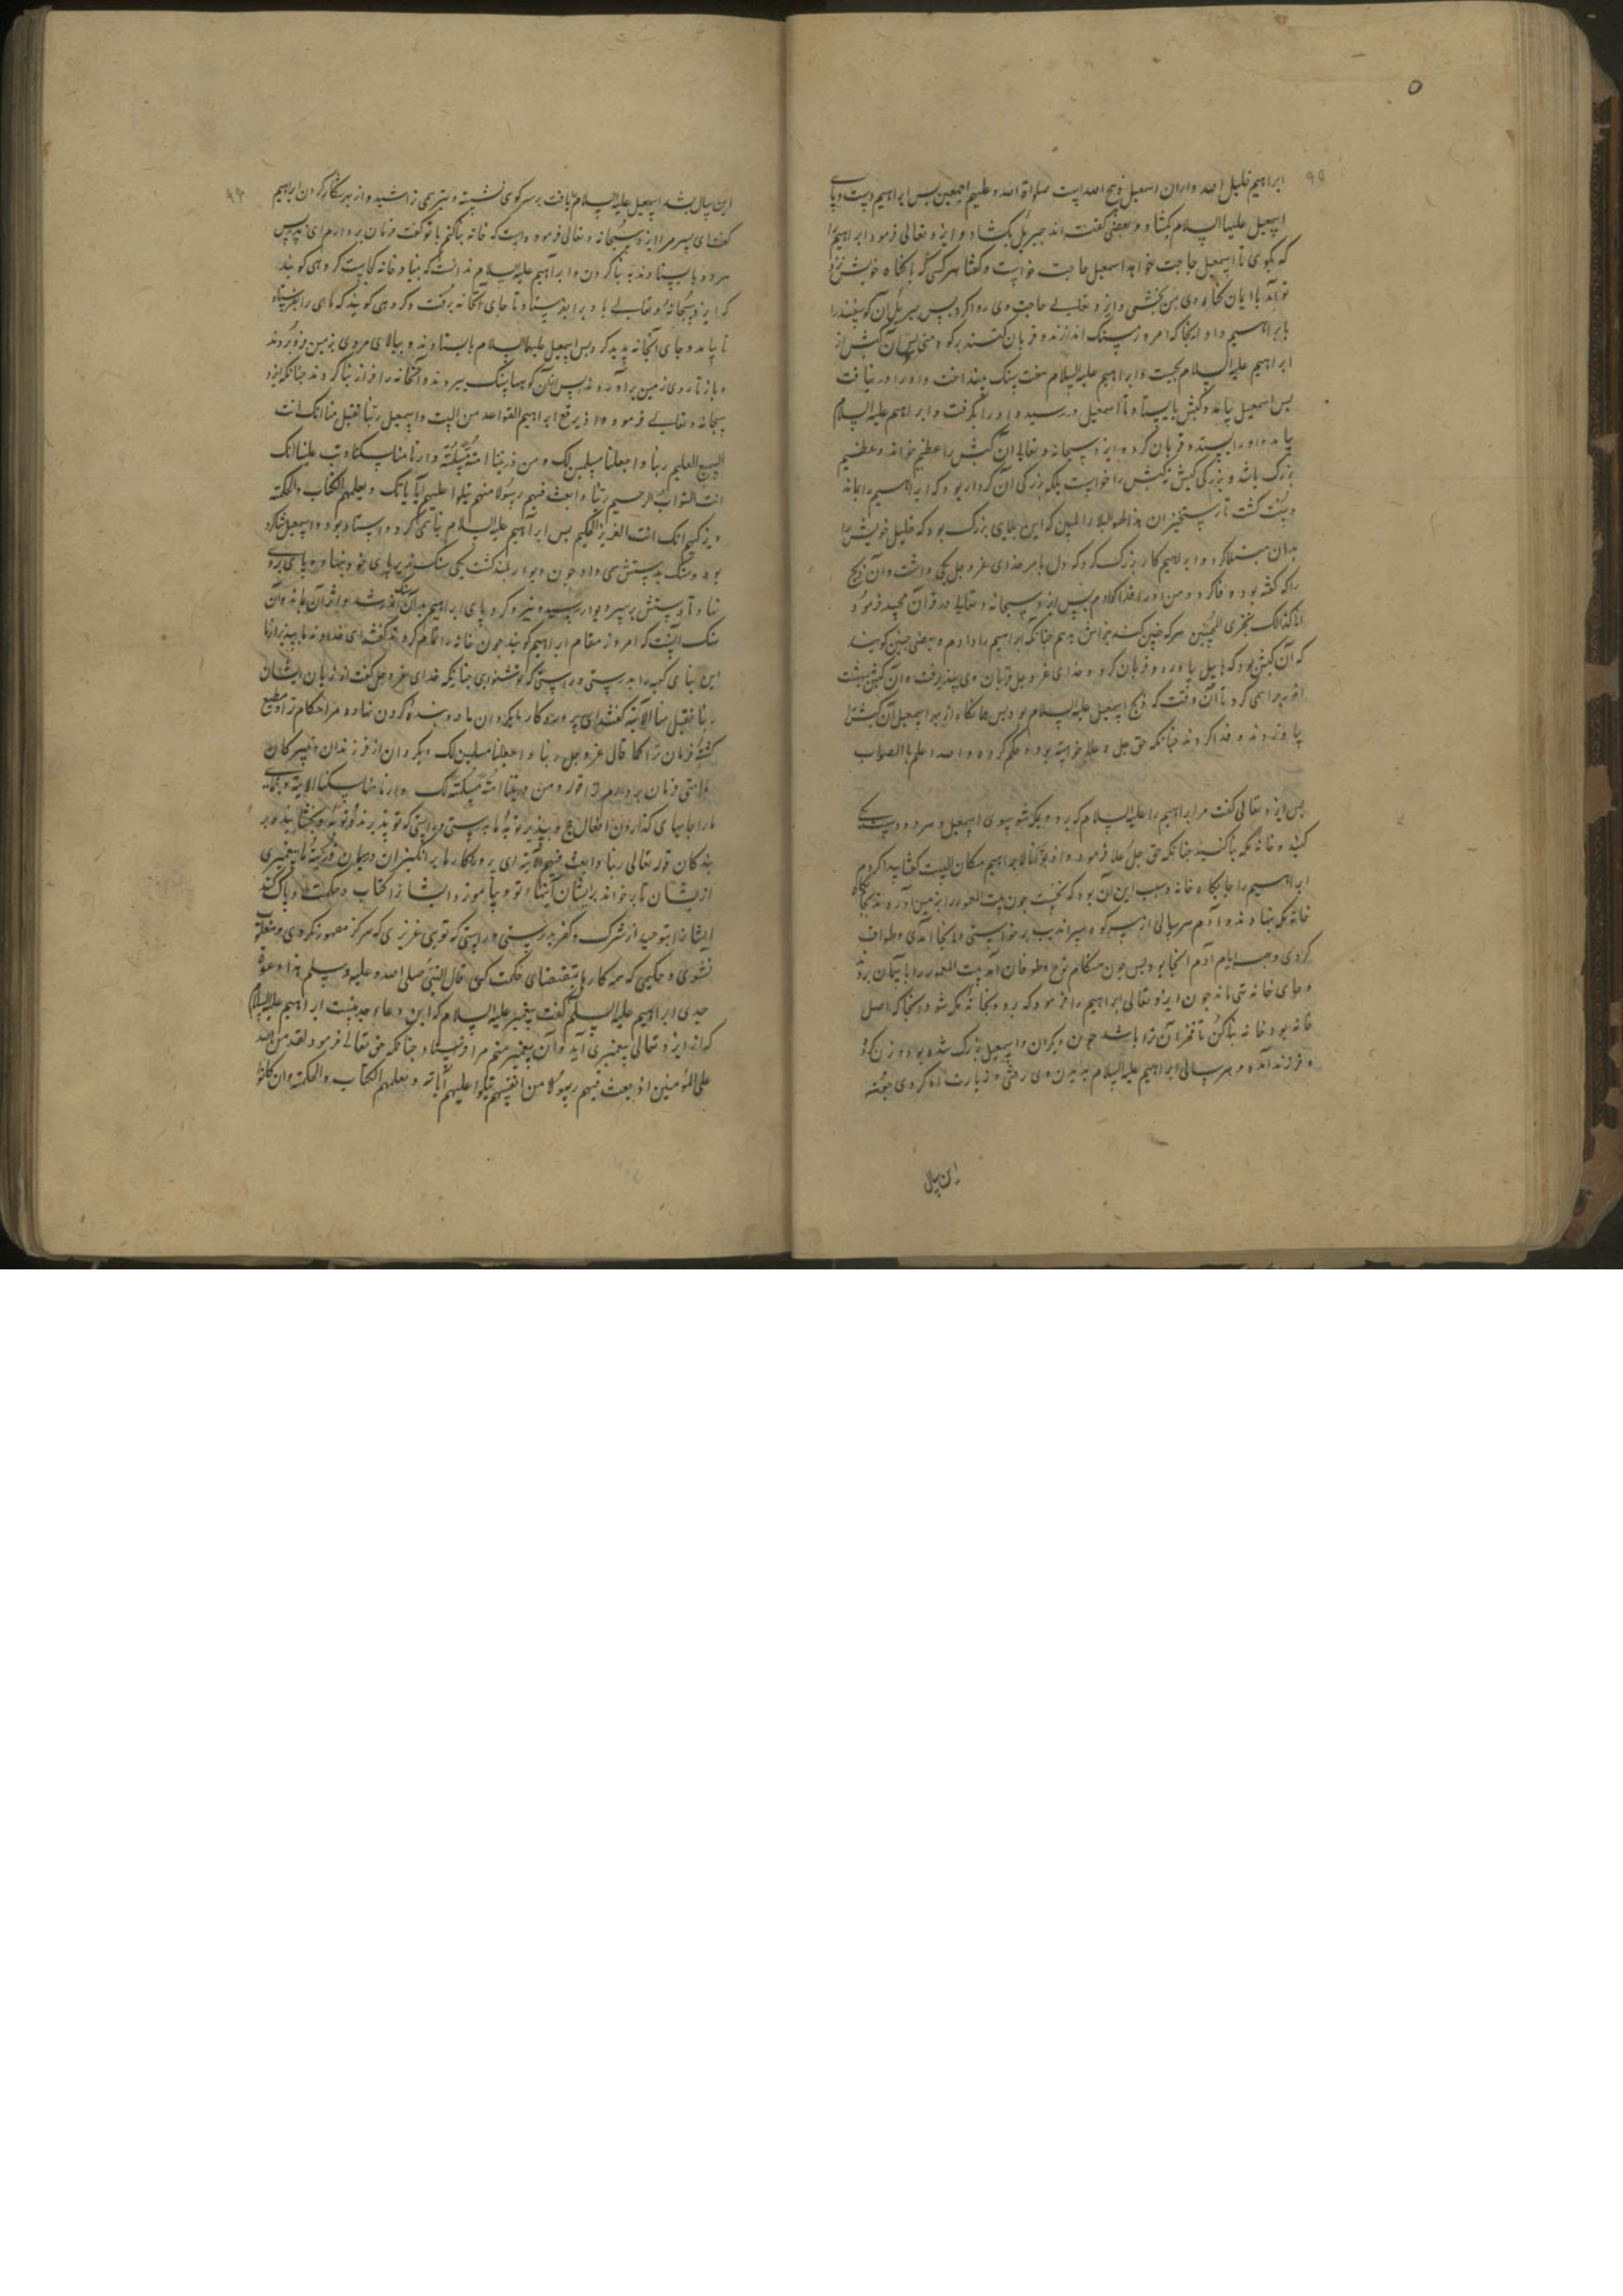 ابراهیم خلیل الله و اران اسمعیل ذبیح الله است صلواة الله و علیهم اجمعین بس ابراهیم دست و پای
اسمعیل علیها السلام بکشاد و بعضی گفته اند جبریل بکشاد و ایزد تعالی فرمود ابراهیم را
که بگوی تا اسمعیل حاجت خواهد اسمعیل حاجت خواست و گفتا هر کسی که با گناه خویش نزد
تو آید با ایمان گناه وی بمن بخشی و ایزد تعالی حاجت وی روا کرد بس جبریل آن گوسفند را
بابراهیم داد اینجا که امروز سنک اندازند و قربان کنند برکوه منی بس آن کبش از
ابراهیم علیه السلام بجست و ابراهیم علیه السلام هفت سنک بینداخت و او را در نیافت
بس اسمعیل بیامد و کبش بایستاد تا اسمعیل در رسید و او را بگرفت و ابراهیم علیه السلام
بیامد و او را بستد و قربان کرد و ایزد سبحانه و تعالی آن کبش را عظیم خواند و عظیم
بزرگ باشد و بزرگی کبش نه کبش را خواست بلکه بزرگی آن کردار بود که ابراهیم را بماند
و سنت گشت تا رستخیز ان هذا لهو البلا المبین که این بلای بزرک بود که خلیل خویش را
بدان مبتلا کرد و ابراهیم کار بزرک کرد که دل بامر خدای عز و جل یکی داشت و آن ذبح
را که گفته بود وفا کرد و من او را فدا دادم بس ایزد سبحانه و تعالی در قرآن مجید فرمود
انا کذالک نجزی المحسنین هر که چنین کند جزاش بدهم جنانکه ابراهیم را دادم و بعضی جنین گویند
که آن کبش بود که هابیل بیاورد و قربان کرد و خدای عز و جل قربان وی بپذیرفت و آن کبش ببهشت
اندر چرا همی کرد تا آن وقت که ذبح اسمعیل علیه السلام بود بس هانکاه از بهر اسمعیل آن کبش را
بیاوردند و فدا کردند جنانکه حق جل و علا خواسته بود و حکم کرده و الله اعلم بالصواب
بس ایزد تعالی گفت مر ابراهیم را علیه السلام که برو و بمکه شو بسوی اسمعیل و هر دو دست
کنید و خانه مکه بنا کنید جنانکه حق جل و علا فرمود و اذ بوانا لابراهیم مکان البیت گفتا پیدا کردم
ابراهیم را جایگاه خانه و سبب این آن بود که نخست جون بیت المعمور را بزمین آوردند بجایگاه
خانه مکه بنهادند و آدم هر سالی از سر کوه سراندیب برخواستی و انجا آمدی و طواف
کردی و همه ایام آدم انجا بود بس جون هنکام نوح و طوفان آمد بیت المعمور را بآسمان بردند
و جای خانه تهی ماند جون ایزد تعالی ابراهیم را فرمود که برو و بخانه مکه شو و انجا که اصل
خانه بود خانه بنا کن تا فخر آن ترا باشد جون دیگران و اسمعیل بزرک شده بود و زن کرد
و فرزند آمده و هر سالی ابراهیم علیه السلام بدیدن وی رفتی و زیارت او کردی جون
این سال
این سال بشد اسمعیل علیه السلام یافت بر سر کوی نشسته و تیری می تراشید و از بهر شکار کردن ابراهیم
گفت ای پسر مرا ایزد سبحانه و تعالی فرموده است که خانه بنا کنم با تو گفت فرمان بردارم ای پدر بس
هر دو بایستادند به بنا کردن و ابراهیم علیه السلام ندانست که بنیاد خانه کجاست گروهی گویند
که ایزد سبحانه و تعالی باد را بفرستاد تا جای آنخانه برفت و گروهی گویند که ماری را بفرستاد
تا بیامد و جای آنخانه پدید کرد بس اسمعیل علیهما السلام بایستادند و ببالای مردی بزمین فرو بردند
و باز تا روی زمین برآوردند بس از آن کوهها سنک ببریدند و آنخانه را فراز بنا کردند جنانکه ایزد
سبحانه و تعالی فرمود و اذ یرفع ابراهیم القواعد من البیت و اسمعیل ربنا تقبل منا انک انت
السمیع العلیم ربنا و اجعلنا مسلمین لک و من ذریتنا امة مسلمة و ارنا مناسکنا و تب علینا انک
انت التواب الرحیم ربنا و ابعث فیهم رسولا منهم یتلوا علیهم آیاتک و یعلمهم الکتاب و الحکمة
و یزکیهم انک انت العزیز الحکیم بس ابراهیم علیه السلام بنا همی کرد و استاد بود و اسمعیل شاکرد
بود و سنک بدستش همی داد جون دیوار بلند گشت یکی سنک زیر پای خود بنهاد و پای بر وی
نهاد تا دستش بر سر دیوار رسید و نیز و کرد پای ابراهیم بدان سنک اندر شد و اثر آن بماند و آن
سنک آنست که امروز مقام ابراهیم گویند جون خانه را تمام کردند گفتند ای خداوند ما بپذیر از ما
این بنای کعبه را بدرستی و راستی که تو شنوایی جنانکه خدای عز و جل گفت از زبان ایشان
ربنا تقبل منا الآیة گفتند ای پروردکار ما بکردان ما را دو بنده گردن نهاده مر احکام ترا و مطیع
کشته فرمان ترا کما قال عز و جل ربنا و اجعلنا مسلمین لک و بگردان از فرزندان و نبیرکان
ما امتی فرمان بردار مر ترا قوله و من ذریتنا امة مسلمة لک و ارنا مناسکنا الآیة و بنمای
ما را جایهای گذاردن افعال حج و بپذیر توبهٔ ما بدرستی و راستی که تو پذیرندهٔ توبهٔ و بخشاینده بر
بندکان قوله تعالی ربنا و ابعث فیهم الآیة ای پروردکار ما برانگیزان درمیان ذریتهٔ ما پیغمبری
از یشان تا بر خواند بر ایشان آیتهاء تو و بیاموزد ایشانرا کتاب و حکمت و پاک کند
ایشانرا بتوحید از شرک و کفر بدرستی و راستی که تویی عزیزی که هرکز مقهور نکردی و مغلوب
نشوی و حکیمی که همه کارها بمقتضای حکمت کنی قال النبی صلی الله و علیه و سلم انا دعوة
جدی ابراهیم علیه السلم گفت پیغمبر علیه السلام که این دعاء جد منست ابراهیم علیه السلام
که از ایزد تعالی پیغمبری آید و آن پیغمبر منم مرا فرستاد جنانکه حق تعالی فرمود لقد من الله
علی المؤمنین اذ بعث فیهم رسولا من انفسهم یتلوا علیهم آیاته و یعلمهم الکتاب و الحکمة و ان کانوا